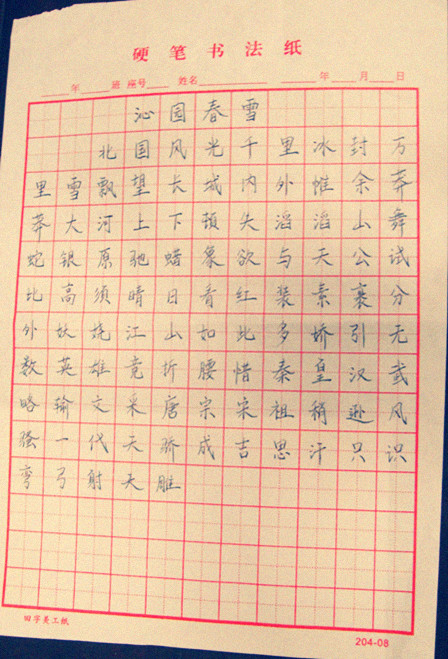 硬笔书法纸
年 班 座号 姓名 年 月 日
沁园春雪
北国风光千里冰封万
里雪飘望长城内外惟余莽
莽大河上下顿失滔滔山舞
蛇银原驰蜡象欲与天公试
比高须晴日看红装素裹分
外妖娆江山如此多娇引无
数英雄竞折腰惜秦皇汉武
略输文采唐宗宋祖稍逊风
骚一代天骄成吉思汗只识
弯弓射天雕
田字美工纸 204-08